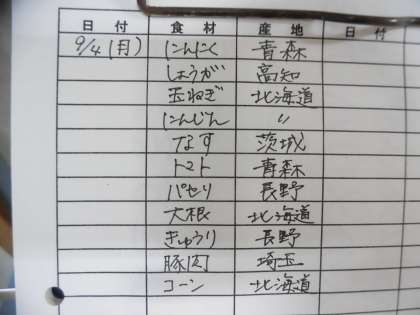 日付 食材 産地 日付
9/4(月) にんにく 青森
しょうが 高知
玉ねぎ 北海道
にんじん 〃
なす 茨城
トマト 青森
パセリ 長野
大根 北海道
きゅうり 長野
豚肉 埼玉
コーン 北海道